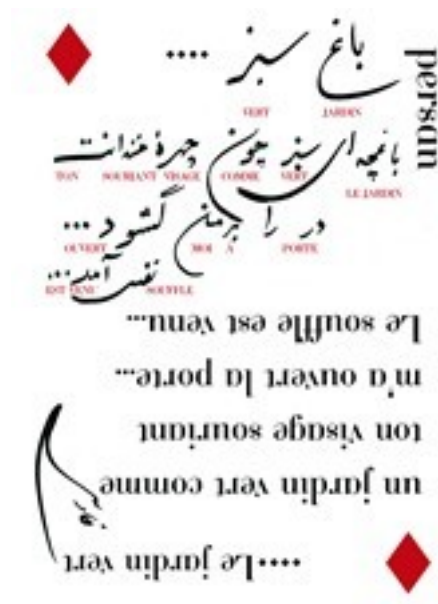 persan
باغ سبز ....
VERT JARDIN
باغچه‌ای سبز چون چهرهٔ خندانت
TON SOURIANT VISAGE COMME VERT LE JARDIN
در را بر من گشود ...
OUVERT MOI A PORTE
نفس آمد ...
EST VENU SOUFFLE
....Le jardin vert
un jardin vert comme
ton visage souriant
m'a ouvert la porte...
Le souffle est venu...